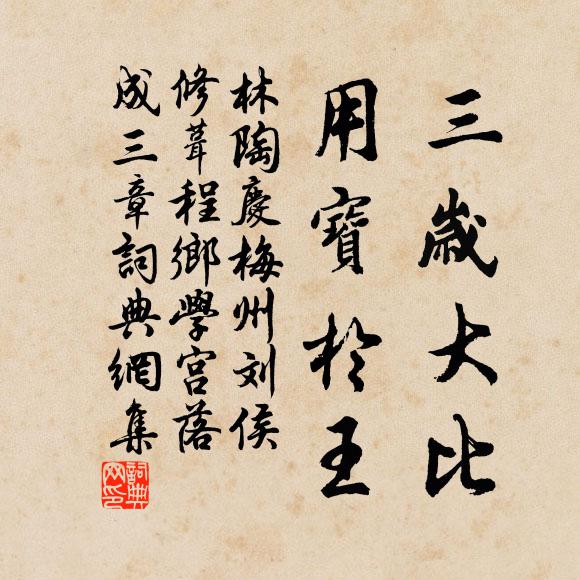 三歲大比
用寶於王
林陶慶梅州刘侯
修葺程鄉學宮落
成三章詞典網集
詞典网印